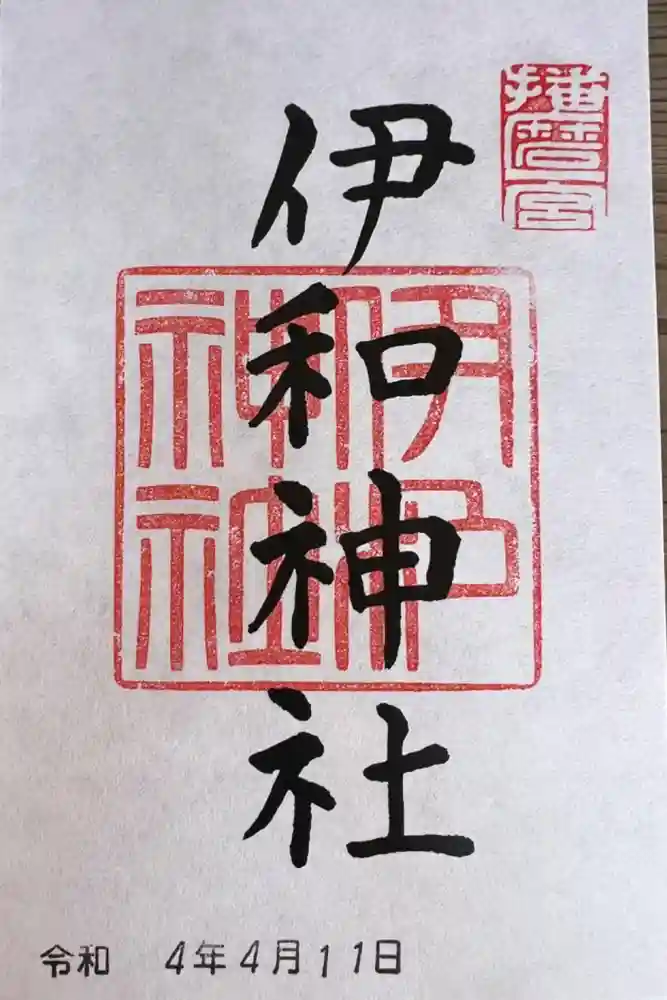 播磨一宮
伊和神社
伊和
神社
令和 4年4月11日